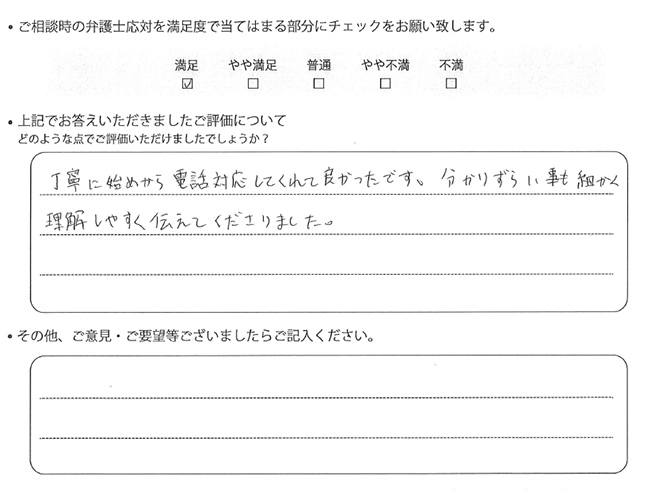 • ご相談時の弁護士応対を満足度で当てはまる部分にチェックをお願い致します。
満足 やや満足 普通 やや不満 不満
☑ ☐ ☐ ☐ ☐
• 上記でお答えいただきましたご評価について
どのような点でご評価いただけましたでしょうか？
丁寧に始めから電話対応してくれて良かったです。分かりずらい事も細かく
理解しやすく伝えてくださりました。
• その他、ご意見・ご要望等ございましたらご記入ください。